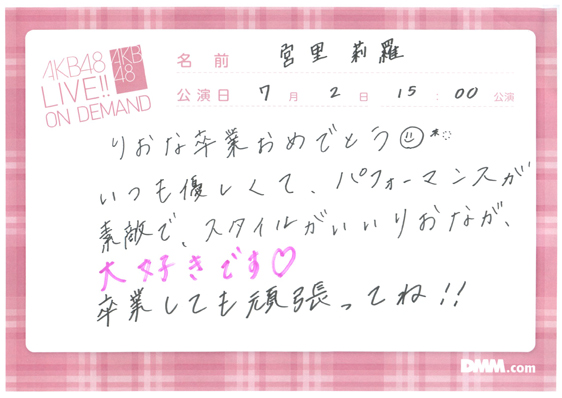 AKB48
LIVE!!
ON DEMAND
AKB
48
名前 宮里莉羅
公演日 7月2日 15:00公演
りおな卒業おめでとう
いつも優しくて、パフォーマンスが
素敵で、スタイルがいいりおなが、
大好きです♡
卒業しても頑張ってね!!
DMM.com